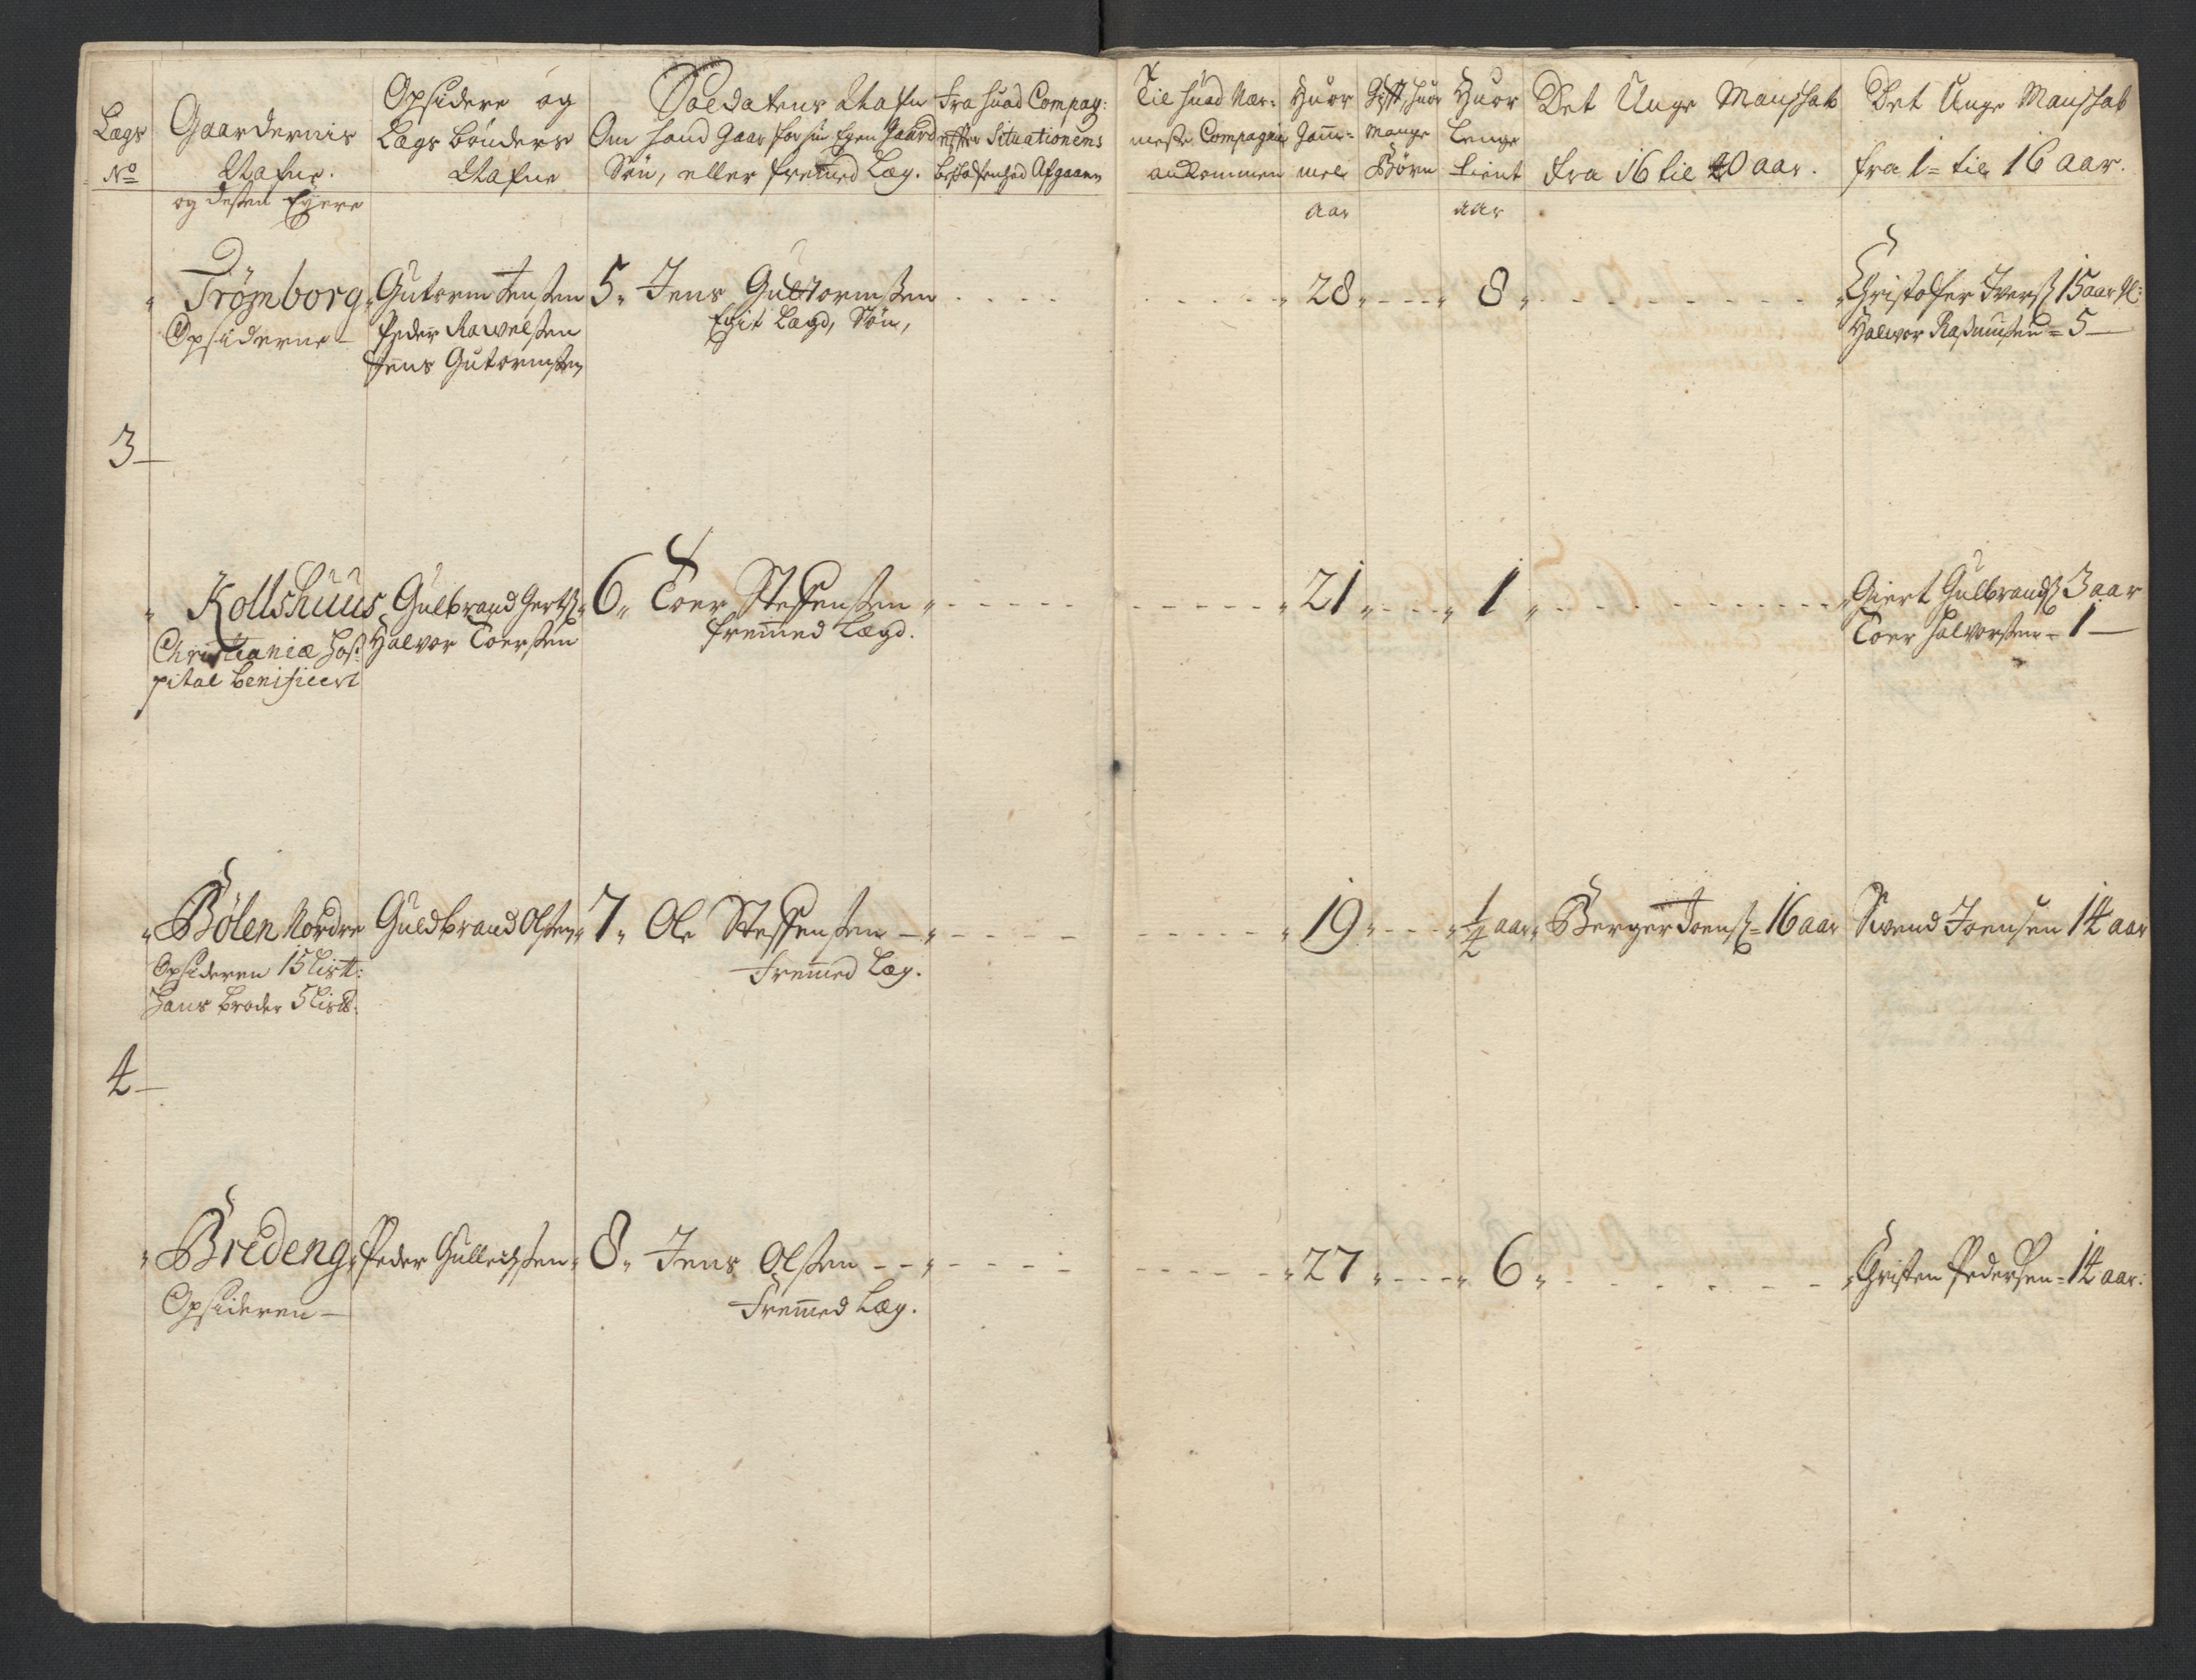 Lægs
No
Gaardernis
Nafne.
og dessen Eyere
Opsidere og
Lægs bønders
Nafne
Soldatens Nafn
Om hand Gaar for sin Egen Gaard
Søn, eller fremmed Læg.
Fra huad Compag:
efter Situationens
beskaffenhed Afgaaen
Til huad Nær-
meste Compagnie
ankommen
Huor
Gam-
mel
aar
Gift, huor
mange
Børn
Huor
Lenge
tient
aar
Det Unge Mandskab
fra 16 til 40 aar.
Det Unge Mandskab
fra 1 = til 16 aar.
3
Trømborg
Opsiderne
Gutorm Jensen
Peder Rawelsen
Jens Gutormsen
5. Jens Guttormsen
Egit Lægd, Søn,
28
8
Christoffer Iverss 15 aar
Halvor Rasmussen = 5
Kollshuus
Christianiæ Hos-
pital benificert
Gulbrand Gertss
Halvor Toersen
6. Toer Steffensen
fremmed Lægd.
21
1
Giert Gulbrands 3 aar
Toer Halvorsen - 1
4
Bølen Nordre
Opsideren 15 Lis℔:
Hans broder 5 Lis℔.
Guldbrand Olsen
7. Ole Steffensen
Fremmed Læg.
19
1/2 aar
Berger Joenss = 16 aar
Svend Joensen 14 aar
Bredeng
Opsideren
Peder Gulleichsen
8. Jens Olsen
Fremmed Læg.
27
6
Christen Pedersen = 14 aar.